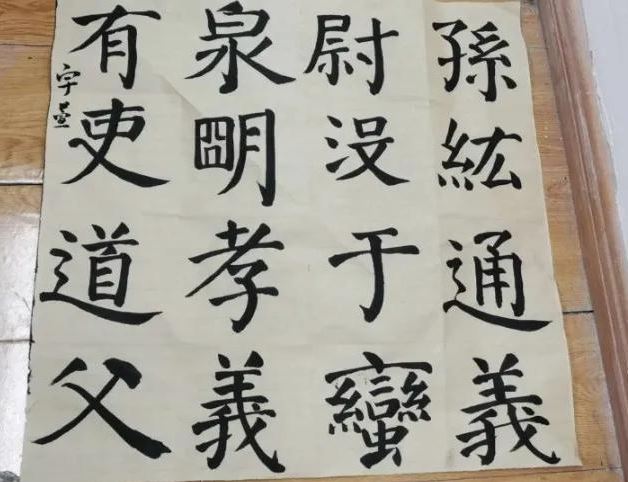 孫紘通義
尉没于蠻
泉明孝義
有吏道父
字